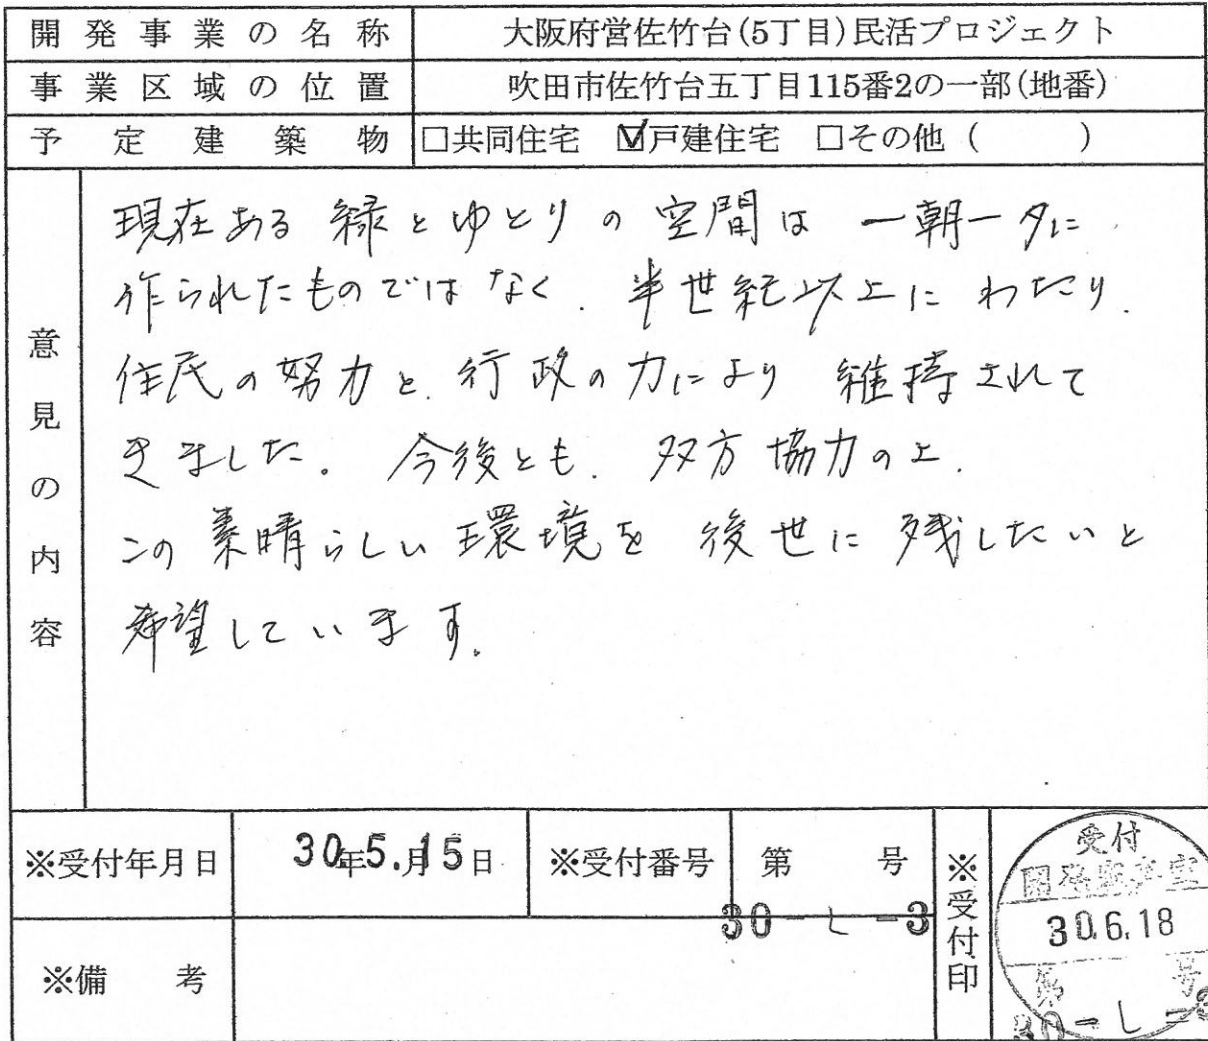 開発事業の名称 大阪府営佐竹台(5丁目)民活プロジェクト
事業区域の位置 吹田市佐竹台五丁目115番2の一部(地番)
予定建築物 □共同住宅 ☑戸建住宅 □その他( )
意見の内容
現在ある緑とゆとりの空間は一朝一夕に
作られたものではなく、半世紀以上にわたり、
住民の努力と、行政の力により維持されて
きました。今後とも、双方協力の上、
この素晴らしい環境を後世に残したいと
希望しています。
※受付年月日 30年5.月15日 ※受付番号 第 号
30-L-3
※備考
※受付印
受付
開発審査室
30.6.18
第 号
30-L-3